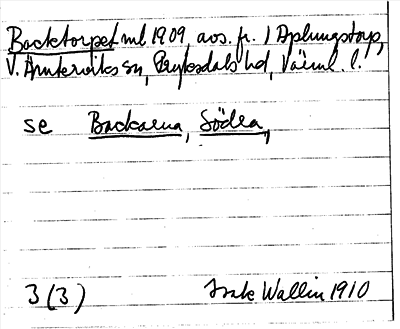 Backtorpet ml. 1909 avs. fr. 1 Aplungstorp,
V. Ämterviks sn, Fryksdals hd, Värml. l.
se Backarna, Södra,
3(3) Wallin 1910